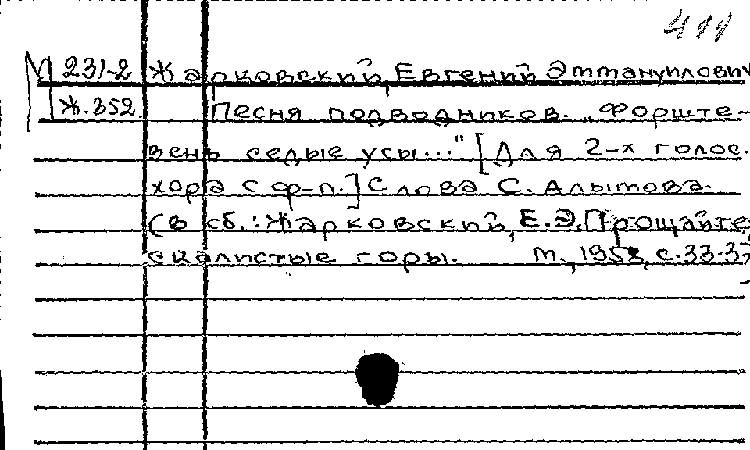 411
М 231-2 Жарковский, Евгений Эммануилович
Ж.352 Песня подводников. „Форште-
вень седые усы..." [Для 2-х голос.
хора с ф-п.] Слова С. Алымова.
(в сб.: Жарковский, Е.Э. Прощайте,
скалистые горы. М., 1958, с.33-37